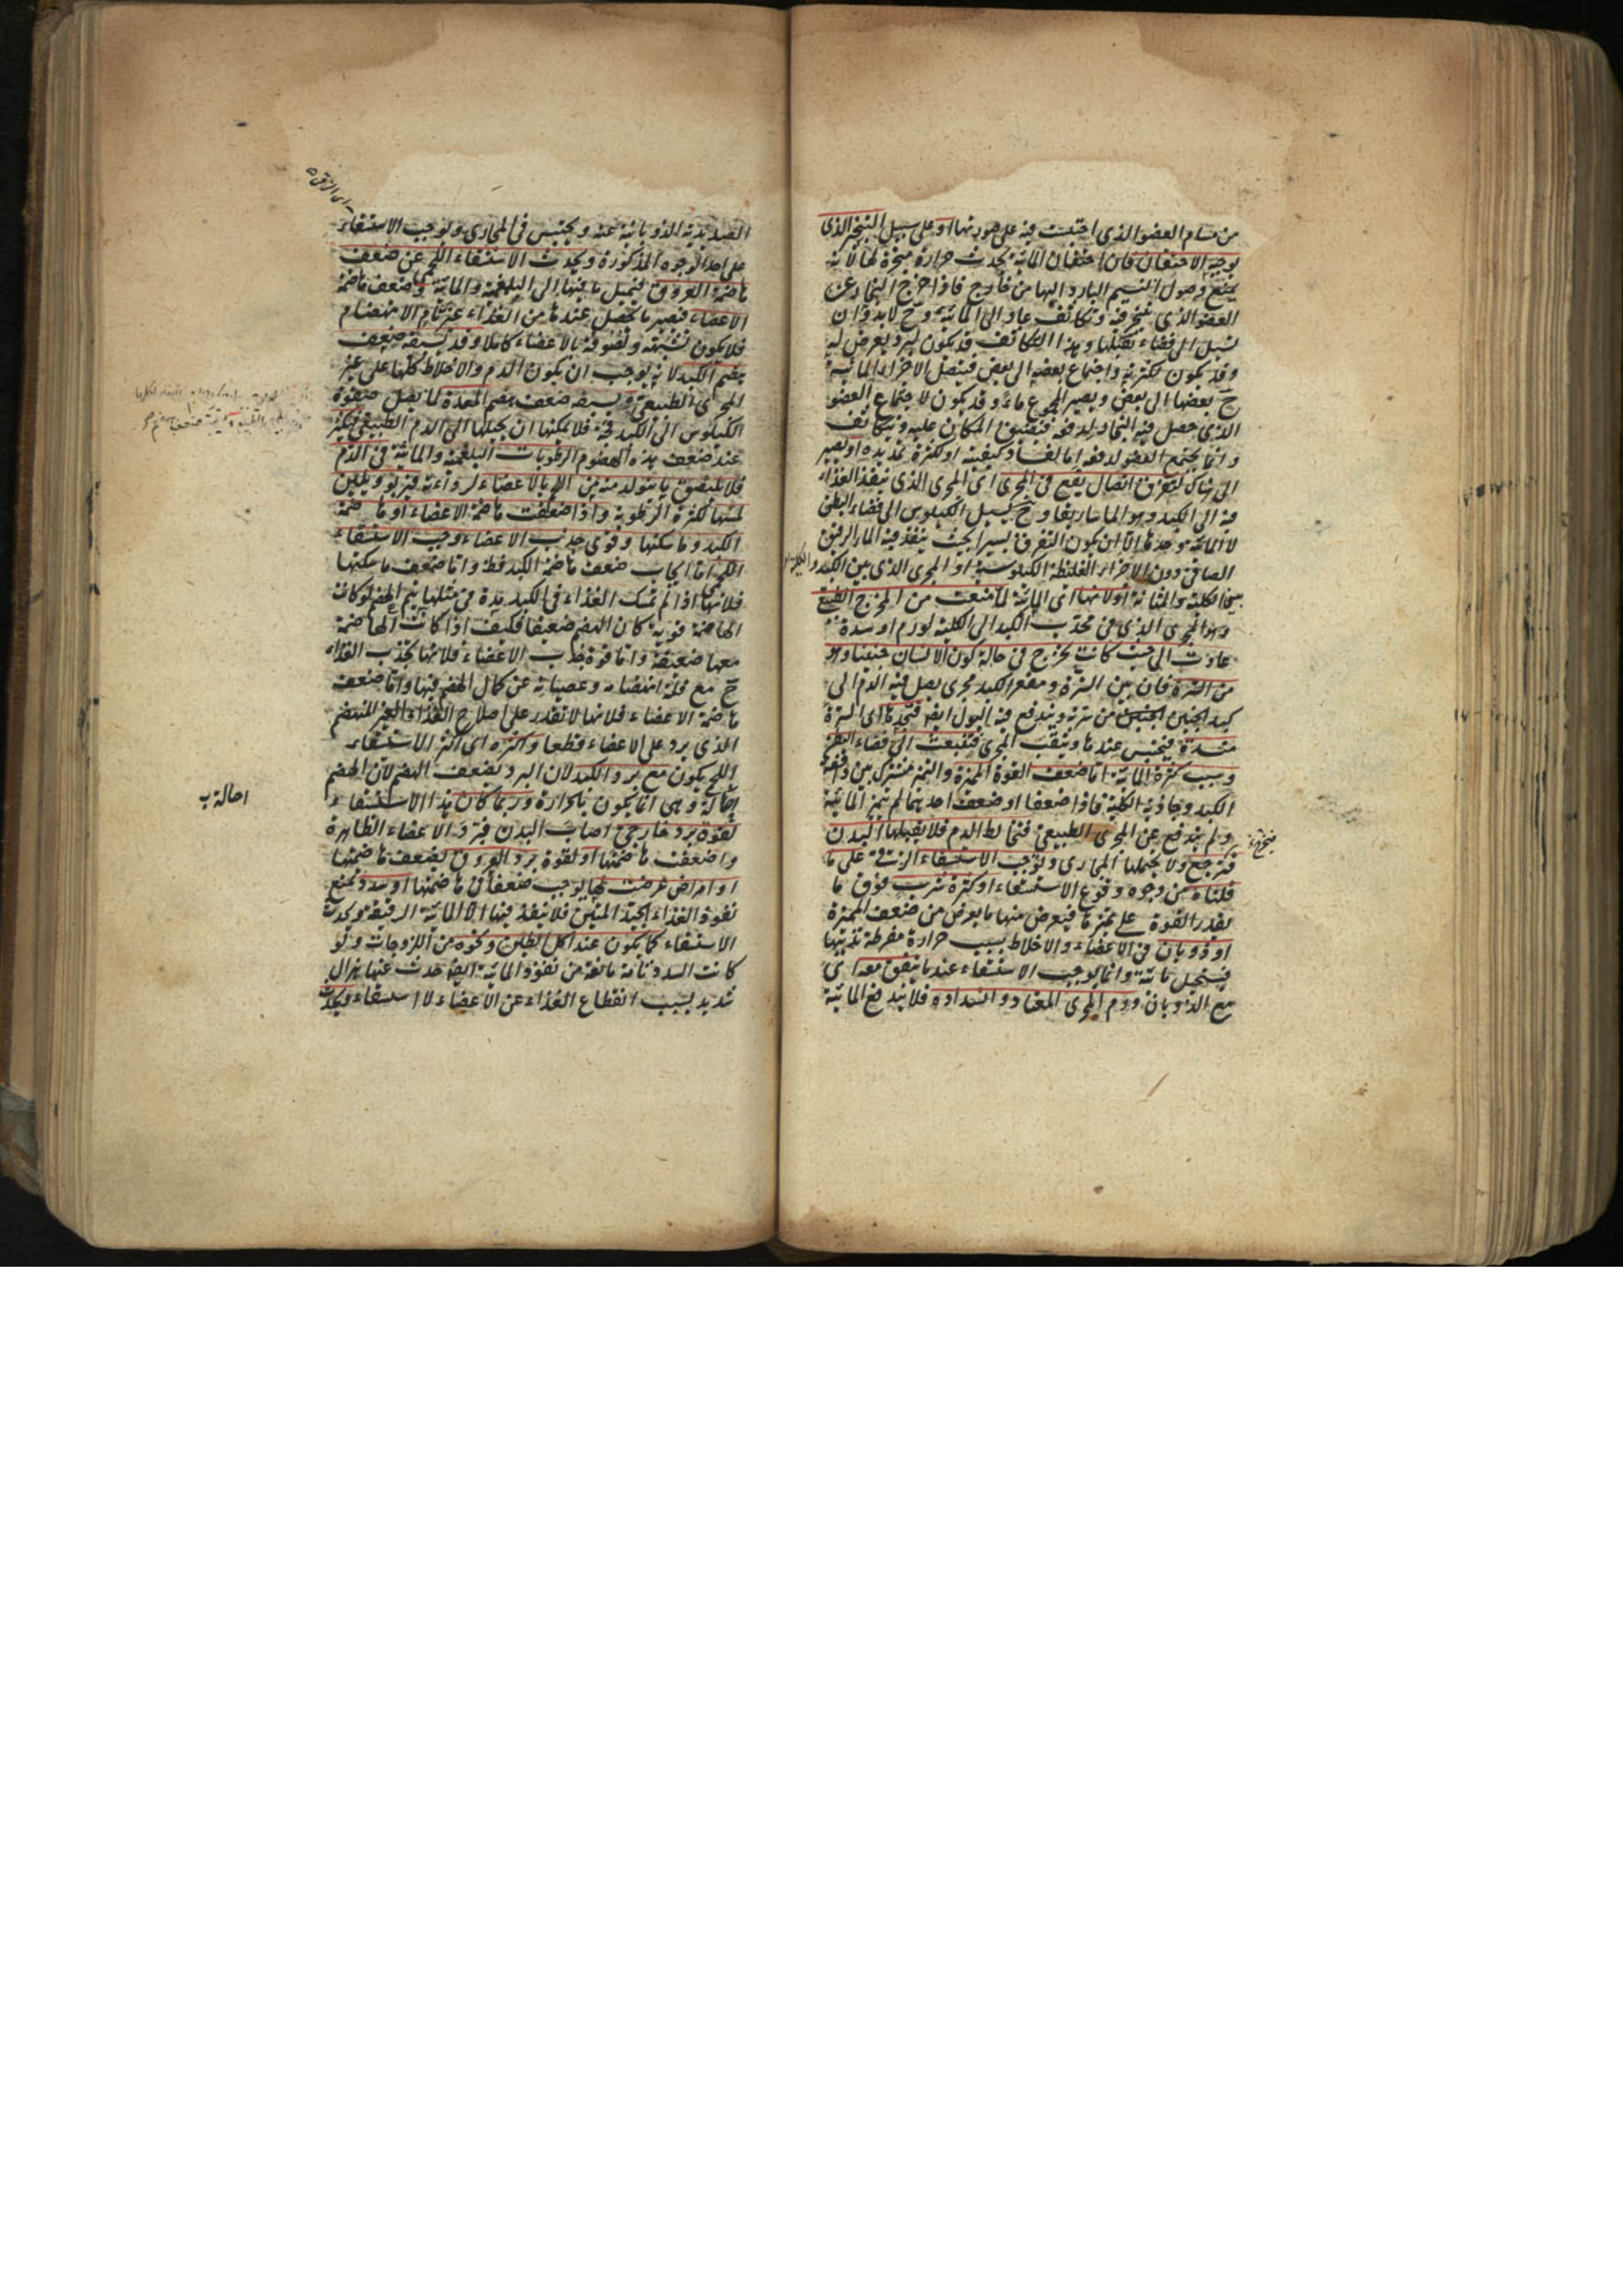 من مسام العضو الذي احتبست فيه على صورتها او على سبيل التبخر الذي
يوجبه الاحتقان فان احتقان المائية يحدث حرارة مبخرة لها لانه
يمنع وصول النسيم البارد اليها من خارج فاذا خرج البخار عن
العضو الذي تبخر فيه وتكاثف عاد الى المائية وح لابد وان
تسيل الى فضاء يقبلها وهذا التكاثف قد يكون لبرد يعرض له
وقد يكون لكثرته واجتماع بعضه الى بعض فيتصل الاجزاء المائية
ح بعضها الى بعض ويصير المجموع ماء وقد يكون لاجتماع العضو
الذي حصل فيه البخار لدفعه فيضيق المكان عليه ويتكاثف
وانما يجتمع العضو لدفعه اما لفساد كيفيته او لكثرة تمديده او يصير
الى هناك لتفرق اتصال يقع في المجرى اى المجرى الذي ينفذ الغذاء
فيه الى الكبد وهو الماساريقا وح يسيل الكيلوس الى فضاء البطن
لا المائية وحدها الا ان يكون التفرق يسيرا بحيث ينفذ فيه الماء الرقيق
الصافي دون الاجزاء الغليظة الكيلوسية او المجرى الذي بين الكبد والكلية
بين الكلية والمثانة او لانها اى المائية لما منعت من المخرج الطبيعي
وهو المجرى الذي في محدب الكبد الى الكلية لورم او سدة
عادت الى حيث كانت تخرج في حالة كون الانسان جنينا وهو
من السرة فان بين السرة ومقعر الكبد مجرى يصل فيه الدم الى
كبد الجنين من سرته ويندفع فيه البول ايضا فتجدها اى السرة
منسدة فيحتبس عندها وينقب المجرى فتنبعث الى فضاء البطن
وسبب كثرة المائية اما ضعف القوة المميزة والتميز مشترك بين دافعة
الكبد وجاذبة الكلية فاذا ضعفا او ضعف احدهما لم يتميز المائية
ولم يندفع عن المجرى الطبيعي فتخالط الدم فلا يقبلها البدن
فترجع ولا يحملها المجاري وتوجب الاستسقاء الزقي على ما
قلناه من وجوه وقوع الاستسقاء او كثرة شرب فوق ما
يقدر القوة على تميزها فيعرض منها ما يعرض من ضعف المميزة
او ذوبان في الاعضاء والاخلاط بسبب حرارة مفرطة تذيبها
فيستحيل مائية وانما يوجب الاستسقاء عندما يتفق معه اى
مع الذوبان ورم المجرى المعتاد وانسداده فلا يندفع المائية
الصديدية الذوبانية عنه ويحتبس في المجاري ويوجب الاستسقاء
اى الزقي
على احد الوجوه المذكورة ويحدث الاستسقاء اللحمي عن ضعف
هاضمة العروق فيحيل ما فيها الى البلغمية والمائية وضعف هاضمة
الاعضاء فيصير ما يحصل عندها من الغذاء غير تام الانهضام
فلا يكون تشبيهه ولصوقه بالاعضاء كاملا وقد يسبقه ضعف
هضم الكبد لانه يوجب ان يكون الدم والاخلاط كلها على غير
المجرى الطبيعي ويسبقه ضعف هضم المعدة لما يصل صفوة
الكيلوس الى الكبد فجة فلا يمكنها ان يحيلها الى الدم الطبيعي فيكثر
عند ضعف هذه الهضوم الرطوبات البلغمية والمائية في الدم
فلا يلتصق ما يتولد منه من اللحم بالاعضاء لرداءته فيربو ويلين
لمسها لكثرة الرطوبة واذا ضعفت هاضمة الاعضاء او هاضمة
الكبد وماسكتها وقوي جذب الاعضاء وجب الاستسقاء
اللحمي اما ايجاب ضعف هاضمة الكبد فظ واما ضعف ماسكتها
فلانها اذا لم تمسك الغذاء في الكبد مدة في مثلها يتم الهضم لو كانت
الهاضمة قوية كان الهضم ضعيفا فكيف اذا كانت الهاضمة
معها ضعيفة واما قوة جذب الاعضاء فلانها تجذب الغذاء
ح مع قلة انهضامه وعصيانه عن كمال الهضم فيها واما ضعف
هاضمة الاعضاء فلانها لا تقدر على اصلاح الغذاء الغير المنهضم
الذي يرد على الاعضاء قطعا واكثره اى اكثر الاستسقاء
اللحمي يكون مع برد الكبد لان البرد يضعف الهضم لان الهضم
احالة وهي انما يكون بالحرارة وربما كان هذا الاستسقاء
احالة
لقوة برد خارجي اصاب البدن فبرد الاعضاء الظاهرة
واضعفت هاضمتها او لقوة برد العروق يضعف هاضمتها
او امراض عرضت لها يوجب ضعفا في هاضمتها او سدد تمنع
نفوذ الغذاء الجيد المتين فلا ينفذ فيها الا المائية الرقيقة ويحدث
الاستسقاء كما يكون عند اكل الطين ونحوه من اللزوجات ولو
كانت السدد تامة مانعة من نفوذ المائية ايضا حدث عنها هزال
شديد بسبب انقطاع الغذاء عن الاعضاء لا استسقاء ويحدث